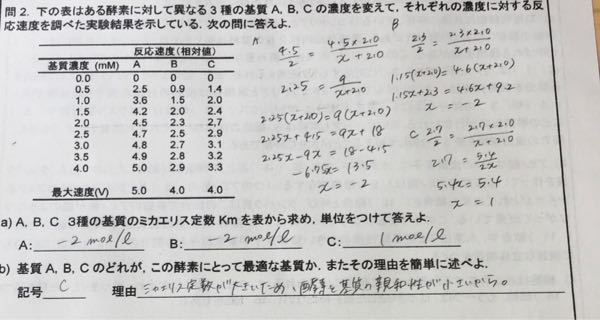 問2. 下の表はある酵素に対して異なる3種の基質A, B, Cの濃度を変えて, それぞれの濃度に対する反
応速度を調べた実験結果を示している. 次の問に答えよ.
反応速度(相対値)
基質濃度 (mM) A B C
0.0 0 0 0
0.5 2.5 0.9 1.4
1.0 3.6 1.5 2.0
1.5 4.2 2.0 2.4
2.0 4.5 2.3 2.7
2.5 4.7 2.5 2.9
3.0 4.8 2.7 3.1
3.5 4.9 2.8 3.2
4.0 5.0 2.9 3.3
最大速度(V) 5.0 4.0 4.0
A
4.5/2 = 4.5×2.0/x+2.0
2.25 = 9/x+2.0
2.25(x+2.0) = 9(x+2.0)
2.25x+4.5 = 9x+18
2.25x-9x = 18-4.5
-6.75x = 13.5
x = -2
B
2.3/2 = 2.3×2.0/x+2.0
1.15(x+2.0) = 4.6(x+2.0)
1.15x+2.3 = 4.6x+9.2
x = -2
C 2.7/2 = 2.7×2.0/x+2.0
2.7 = 5.4/2x
5.4x = 5.4
x = 1
a) A, B, C 3種の基質のミカエリス定数Kmを表から求め, 単位をつけて答えよ.
A: -2 moe/l B: -2 moe/l C: 1 moe/l
b) 基質A, B, Cのどれが, この酵素にとって最適な基質か. またその理由を簡単に述べよ.
記号 C 理由 ミカエリス定数が大きいため、酵素と基質の親和性が小さいから。